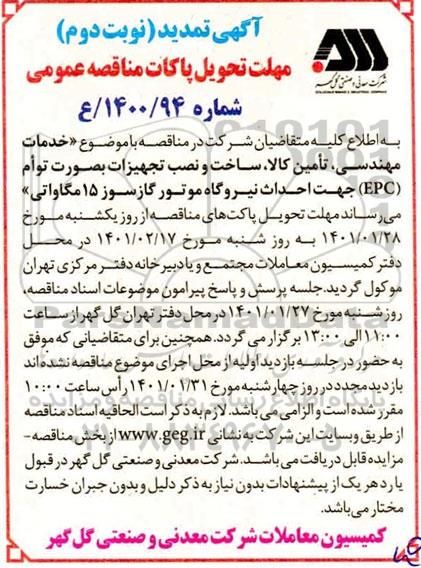 آگهی تمدید (نوبت دوم)
مهلت تحویل پاکات مناقصه عمومی
شماره ۱۴۰۰/۹۴/ع
شرکت معدنی و صنعتی گل گهر
به اطلاع کلیه متقاضیان شرکت در مناقصه با موضوع «خدمات
مهندسی، تأمین کالا، ساخت و نصب تجهیزات بصورت توأم
(EPC) جهت احداث نیروگاه موتور گازسوز ۱۵ مگاواتی»
می‌رساند مهلت تحویل پاکت‌های مناقصه از روز یکشنبه مورخ
۱۴۰۱/۰۱/۲۸ به روز شنبه مورخ ۱۴۰۱/۰۲/۱۷ در محل
دفتر کمیسیون معاملات مجتمع و یا دبیرخانه دفتر مرکزی تهران
موکول گردید. جلسه پرسش و پاسخ پیرامون موضوعات اسناد مناقصه،
روز شنبه مورخ ۱۴۰۱/۰۱/۲۷ در محل دفتر تهران گل گهر از ساعت
۱۱:۰۰ الی ۱۳:۰۰ برگزار می گردد. همچنین برای متقاضیانی که موفق
به حضور در جلسه بازدید اولیه از محل اجرای موضوع مناقصه نشده‌اند
بازدید مجدد در روز چهارشنبه مورخ ۱۴۰۱/۰۱/۳۱ رأس ساعت ۱۰:۰۰
مقرر شده است و الزامی می باشد. لازم به ذکر است الحاقیه اسناد مناقصه
از طریق وبسایت این شرکت به نشانی www.geg.ir از بخش مناقصه-
مزایده قابل دریافت می باشد. شرکت معدنی و صنعتی گل گهر در قبول
یا رد هر یک از پیشنهادات بدون نیاز به ذکر دلیل و بدون جبران خسارت
مختار می باشد.
کمیسیون معاملات شرکت معدنی و صنعتی گل گهر